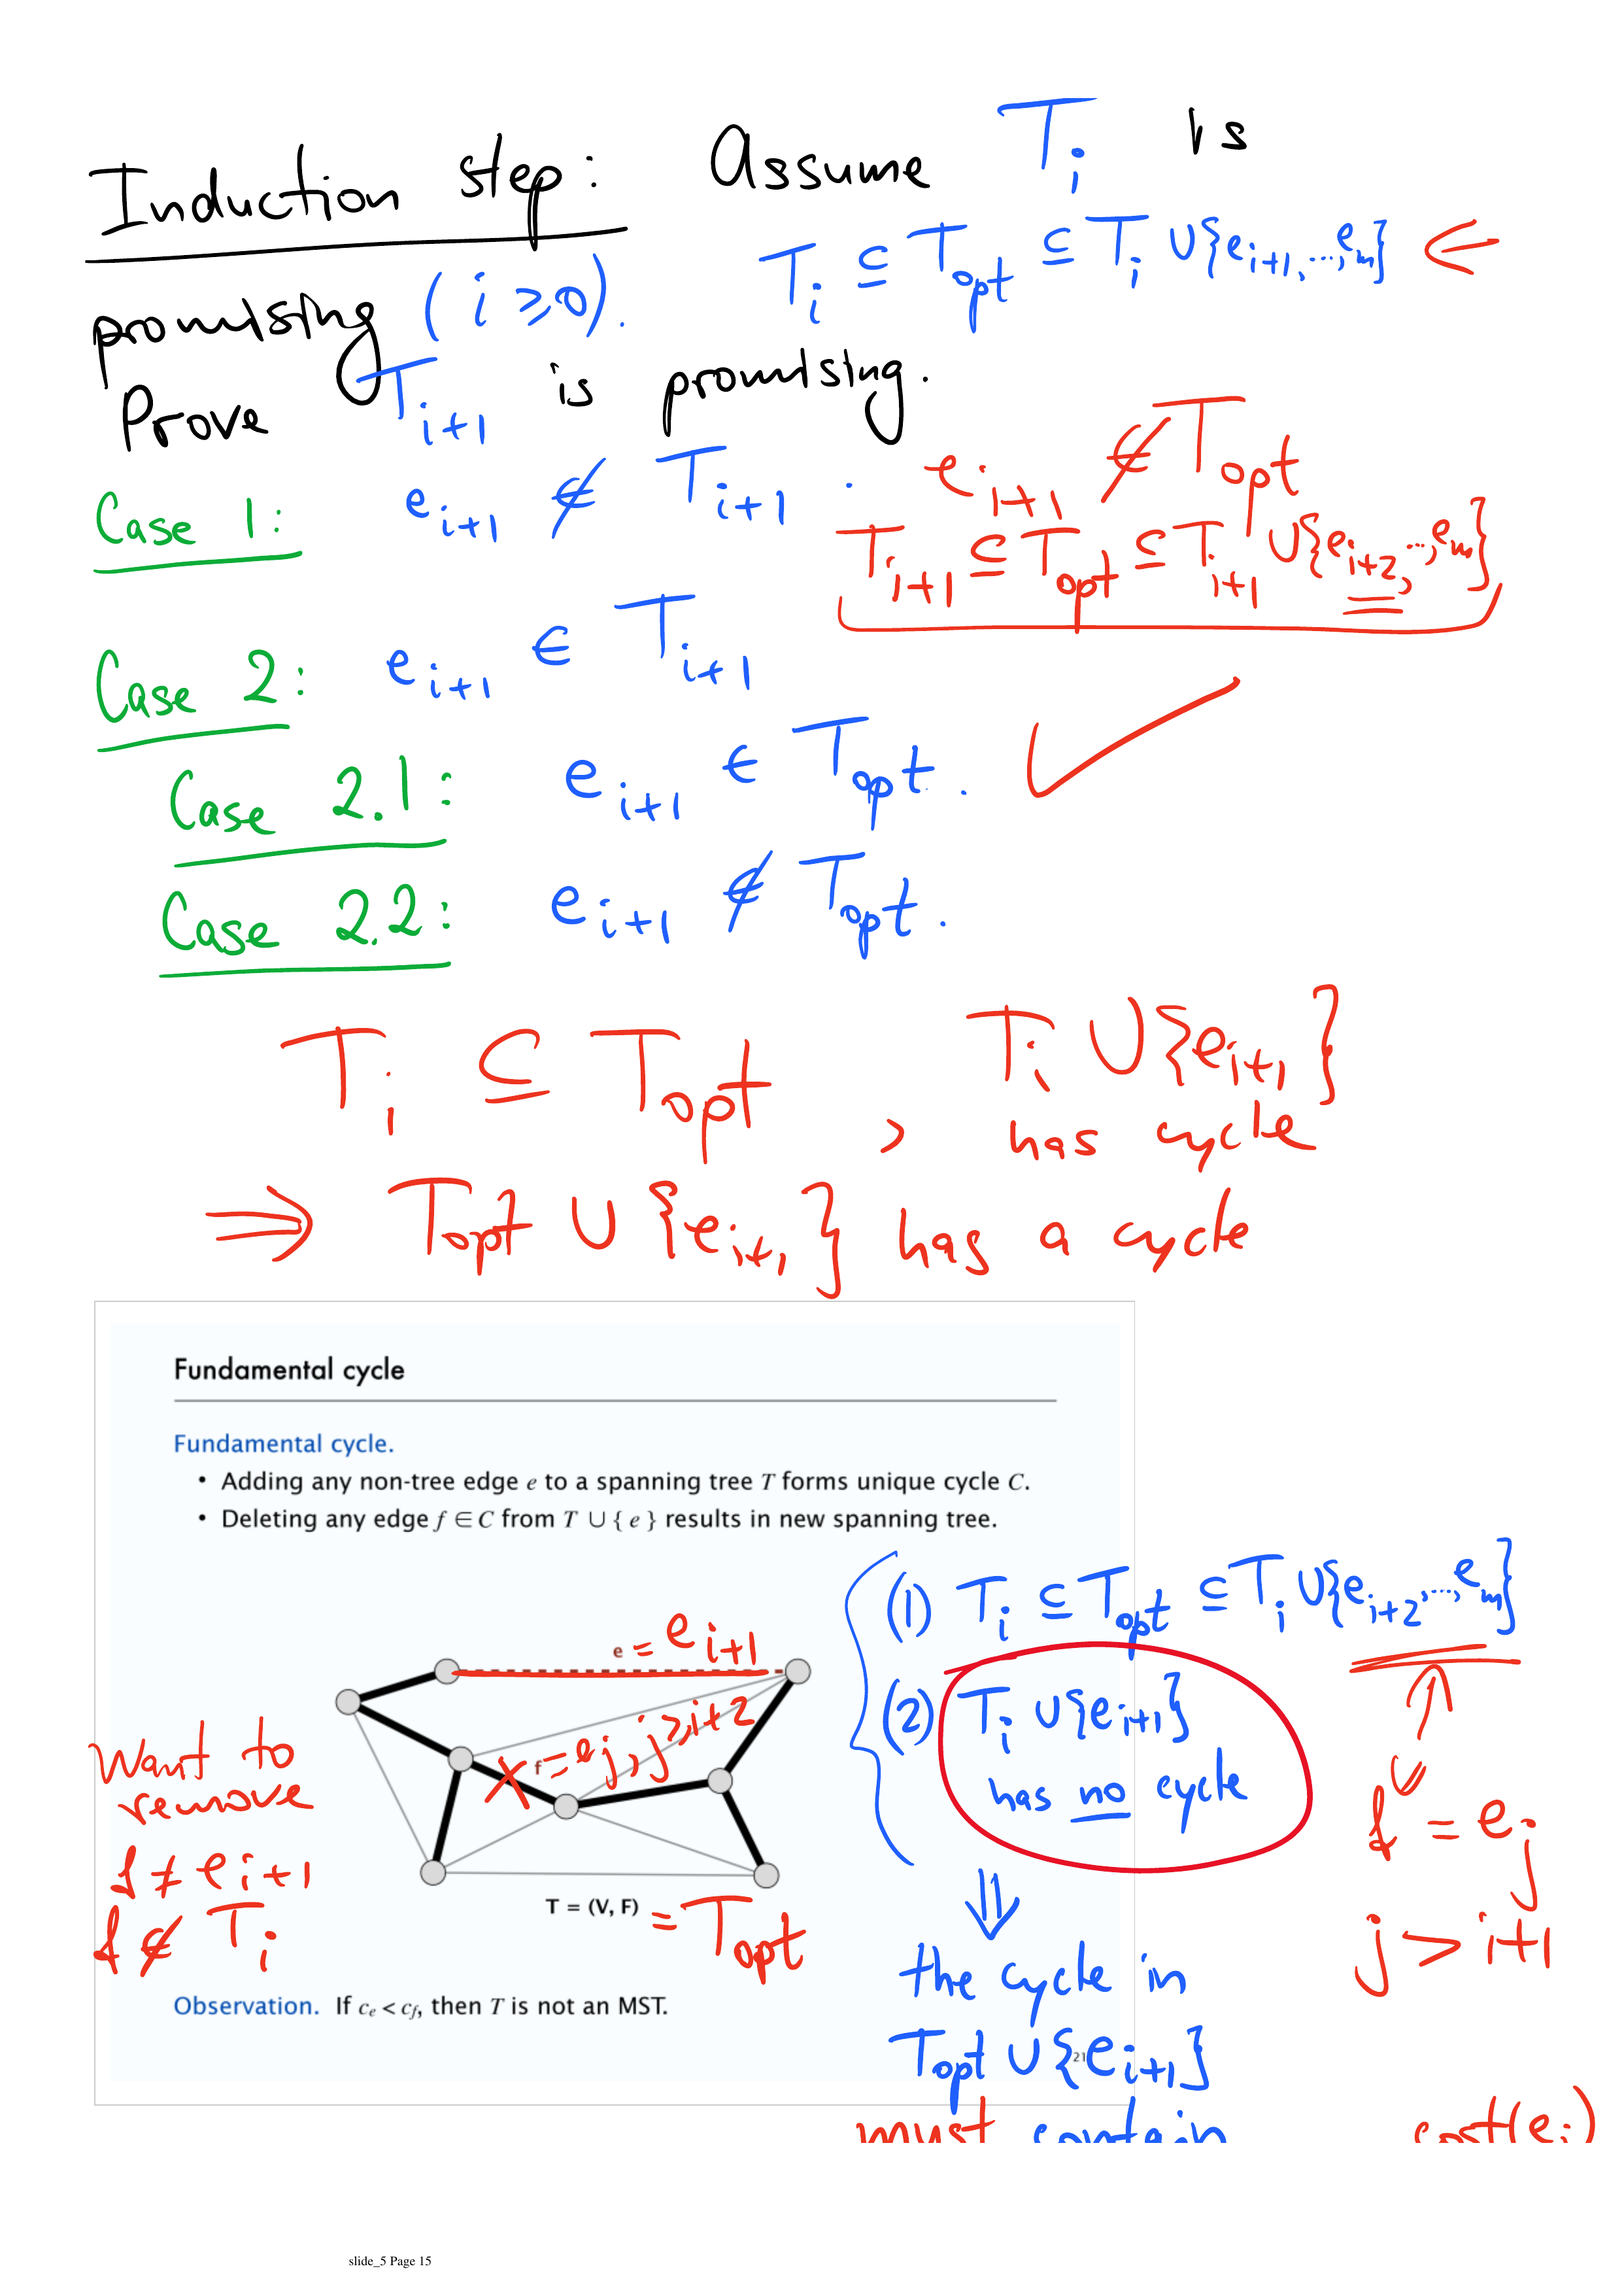 Induction step: Assume T_i is
promising (i ≥ 0). T_i ⊆ T_opt ⊆ T_i ∪ {e_{i+1}, ..., e_m} ⇐
Prove T_{i+1} is promising.
Case 1: e_{i+1} ∉ T_{i+1}. e_{i+1} ∉ T_opt
T_{i+1} ⊆ T_opt ⊆ T_{i+1} ∪ {e_{i+2}, ..., e_m}
Case 2: e_{i+1} ∈ T_{i+1}
Case 2.1: e_{i+1} ∈ T_opt. ✓
Case 2.2: e_{i+1} ∉ T_opt.
T_i ⊆ T_opt , T_i ∪ {e_{i+1}}
has cycle
⇒ T_opt ∪ {e_{i+1}} has a cycle
Fundamental cycle
Fundamental cycle.
• Adding any non-tree edge e to a spanning tree T forms unique cycle C.
• Deleting any edge f ∈ C from T ∪ { e } results in new spanning tree.
e = e_{i+1}
f = e_j, j ≥ i+2
T = (V, F) = T_opt
Want to
remove
f ≠ e_{i+1}
f ∉ T_i
Observation. If c_e < c_f, then T is not an MST.
21
(1) T_i ⊆ T_opt ⊆ T_i ∪ {e_{i+2}, ..., e_m}
(2) T_i ∪ {e_{i+1}}
has no cycle
⇓
the cycle in
T_opt ∪ {e_{i+1}}
must contain
f = e_j
j > i+1
slide_5 Page 15